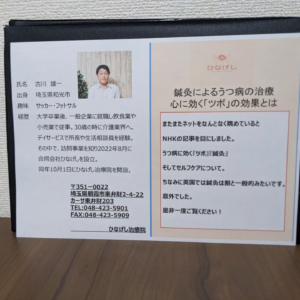 氏名　古川 雄一
出身　埼玉県和光市
趣味　サッカー・フットサル
経歴　大学卒業後、一般企業に就職し飲食業や
小売業で従事。30歳の時に介護業界へ。
デイサービスで所長や生活相談員を経験。
その中で、訪問事業を知り2022年8月に
合同会社ひなげしを設立。
同年10月1日にひなげし治療院を開設。
〒351-0022
埼玉県朝霞市東弁財2-4-22
カーサ東弁財203
TEL:048-423-5901
FAX:048-423-5909
ひなげし治療院
鍼灸によるうつ病の治療
心に効く「ツボ」の効果とは
またまたネットをなんとなく眺めていると
NHKの記事を目にしました。
うつ病に効く「ツボ」「鍼灸」
そしてセルフケアについて。
ちなみに英国では鍼灸は割と一般的みたいです。
意外でした。
是非一度ご覧ください！